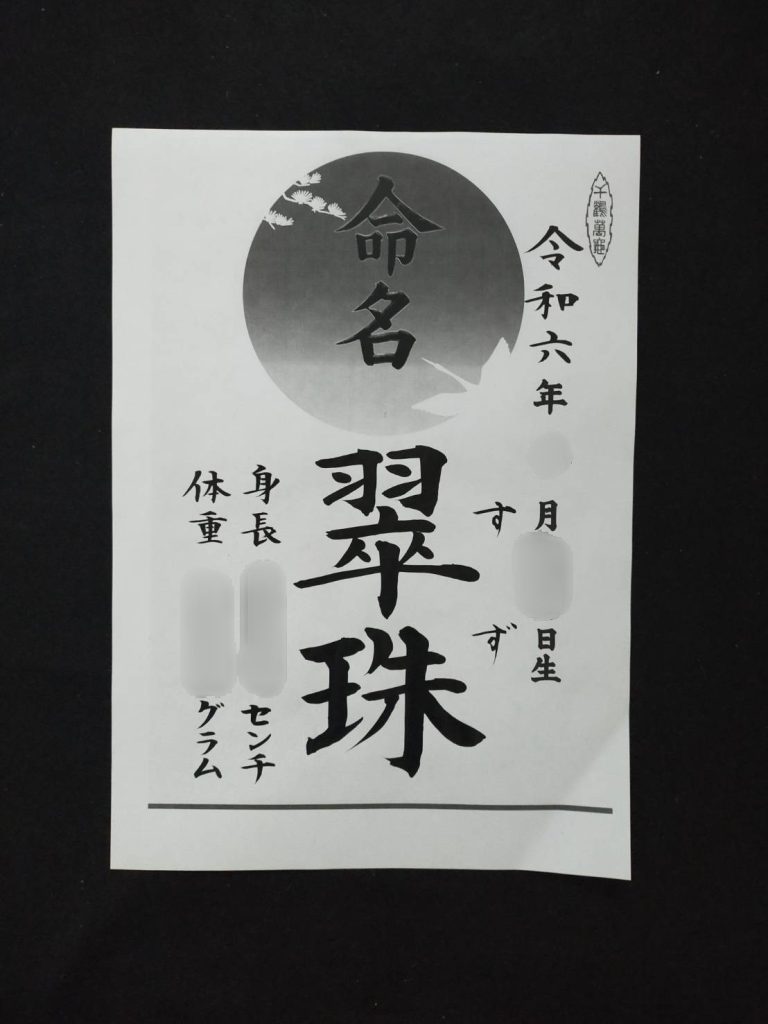 千鶴萬亀
令和六年
月
日生
命名
すず
翠珠
身長
センチ
体重
グラム